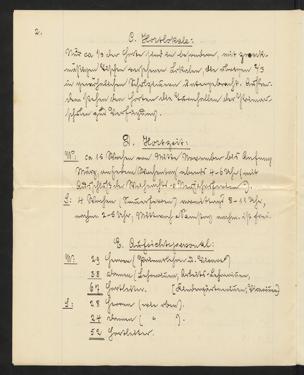 2.
C. Hortlokale:
Nur ca 1/3 der Horte sind in besondern, mit zweck-
mässigen Tischen versehenen Lokalen, die übrigen 2/3
in gewöhnlichen Schulzimmern untergebracht. Ausser-
dem stehen den Horten die Turnhallen der Primar-
schulen zur Verfügung.
D. Hortzeit:
W: ca 15 Wochen von Mitte November bis Anfang
März, an den Wochen abends 4-6 Uhr (mit
Ausschluss der Weihnachts & Neujahrsferien).
S: 4 Wochen (Sommerferien) vormittags 8-11 Uhr,
nachm. 2-6 Uhr, Mittwoch & Samstag nachm. ist frei.
E. Aufsichtspersonal:
W: 29 Herren (Primarlehrer
38 Damen (Lehrerinnen, Arbeits-Lehrerinnen,
67 Hortleiter. Kindergärtnerinnen,
S: 28 Herren (wie oben).
24 Damen ( " ).
52 Hortleiter.